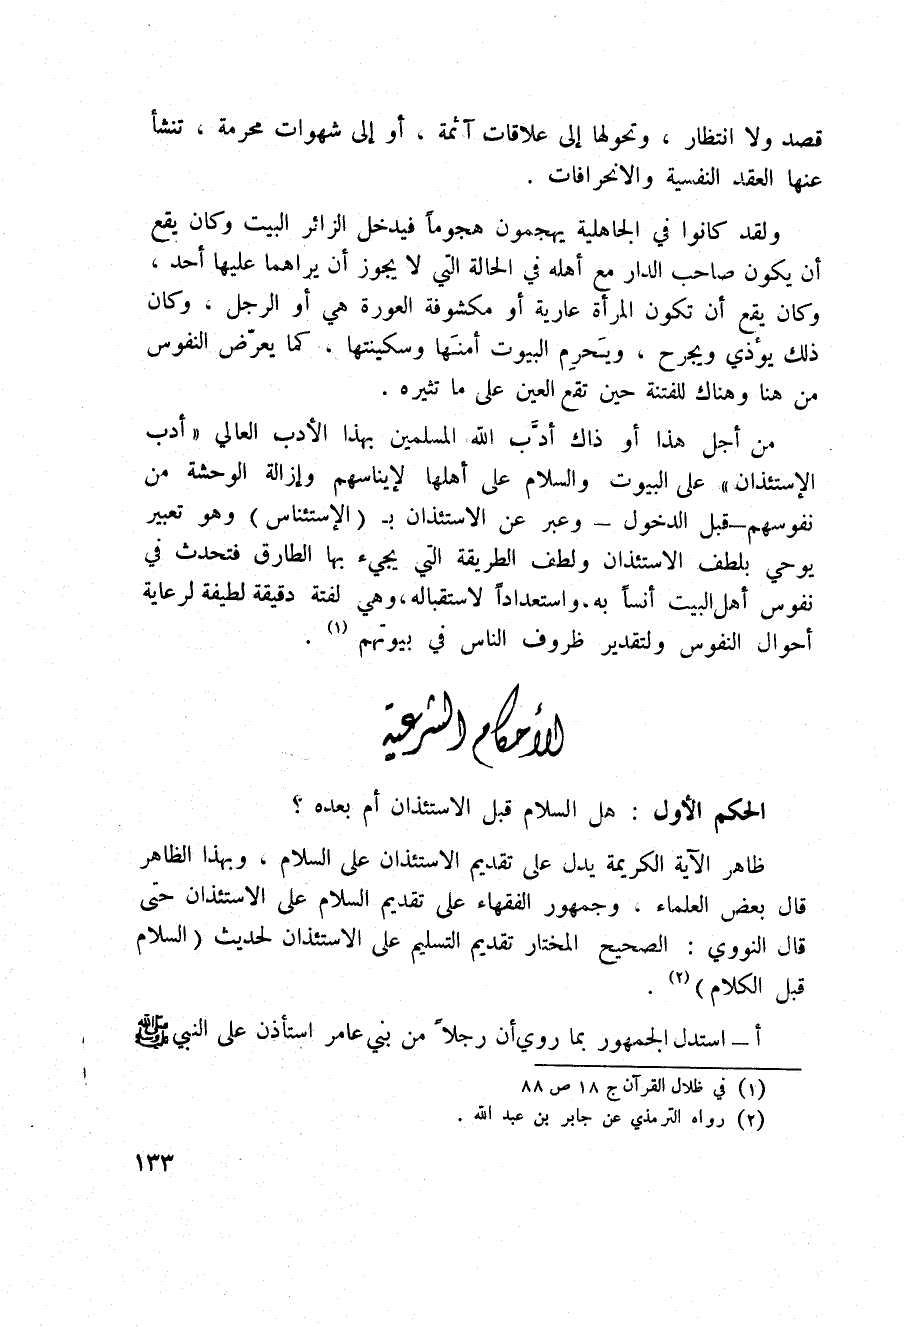 قصد ولا انتظار ، وتحولها إلى علاقات آثمة ، أو إلى شهوات محرمة ، تنشأ
عنها العقد النفسية والانحرافات .
ولقد كانوا في الجاهلية يهجمون هجوماً فيدخل الزائر البيت وكان يقع
أن يكون صاحب الدار مع أهله في الحالة التي لا يجوز أن يراهما عليها أحد ،
وكان يقع أن تكون المرأة عارية أو مكشوفة العورة هي أو الرجل ، وكان
ذلك يؤذي ويجرح ، ويَحرِم البيوت أمنَها وسكينتها . كما يعرّض النفوس
من هنا وهناك للفتنة حين تقع العين على ما تثيره .
من أجل هذا أو ذاك أدَّب الله المسلمين بهذا الأدب العالي « أدب
الإستئذان » على البيوت والسلام على أهلها لإيناسهم وإزالة الوحشة من
نفوسهم—قبل الدخول — وعبر عن الاستئذان بـ ( الإستئناس ) وهو تعبير
يوحي بلطف الاستئذان ولطف الطريقة التي يجيء بها الطارق فتحدث في
نفوس أهل البيت أنساً به.واستعداداً لاستقباله،وهي لفتة دقيقة لطيفة لرعاية
أحوال النفوس ولتقدير ظروف الناس في بيوتهم (١) .
الأحكام الشرعية
الحكم الأول : هل السلام قبل الاستئذان أم بعده ؟
ظاهر الآية الكريمة يدل على تقديم الاستئذان على السلام ، وبهذا الظاهر
قال بعض العلماء ، وجمهور الفقهاء على تقديم السلام على الاستئذان حتى
قال النووي : الصحيح المختار تقديم التسليم على الاستئذان لحديث ( السلام
قبل الكلام ) (٢) .
أ — استدل الجمهور بما روي أن رجلاً من بني عامر استأذن على النبي ﷺ
(١) في ظلال القرآن ج ١٨ ص ٨٨
(٢) رواه الترمذي عن جابر بن عبد الله .
١٣٣